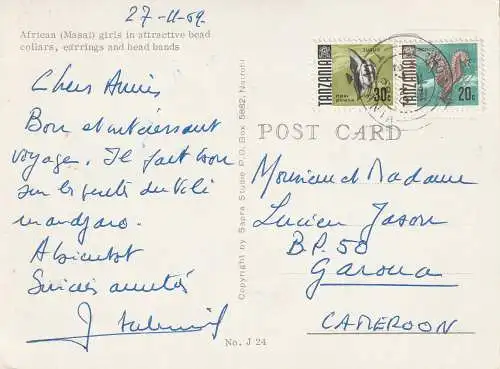 27-11-69.
African (Masai) girls in attractive bead
collars, earrings and head bands
Chers Amis
Bon et intéressant
voyage. Il fait bon
sur les pentes du Kili
mandjaro.
A bientôt
amitiés
J.
No. J 24
Copyright by Sapra Studio P.O. Box 5882, Nairobi
TANZANIA
30c
TANZANIA
20c
POST CARD
Monsieur et Madame
Lucien Jason
B.P. 50
Garoua
CAMEROON